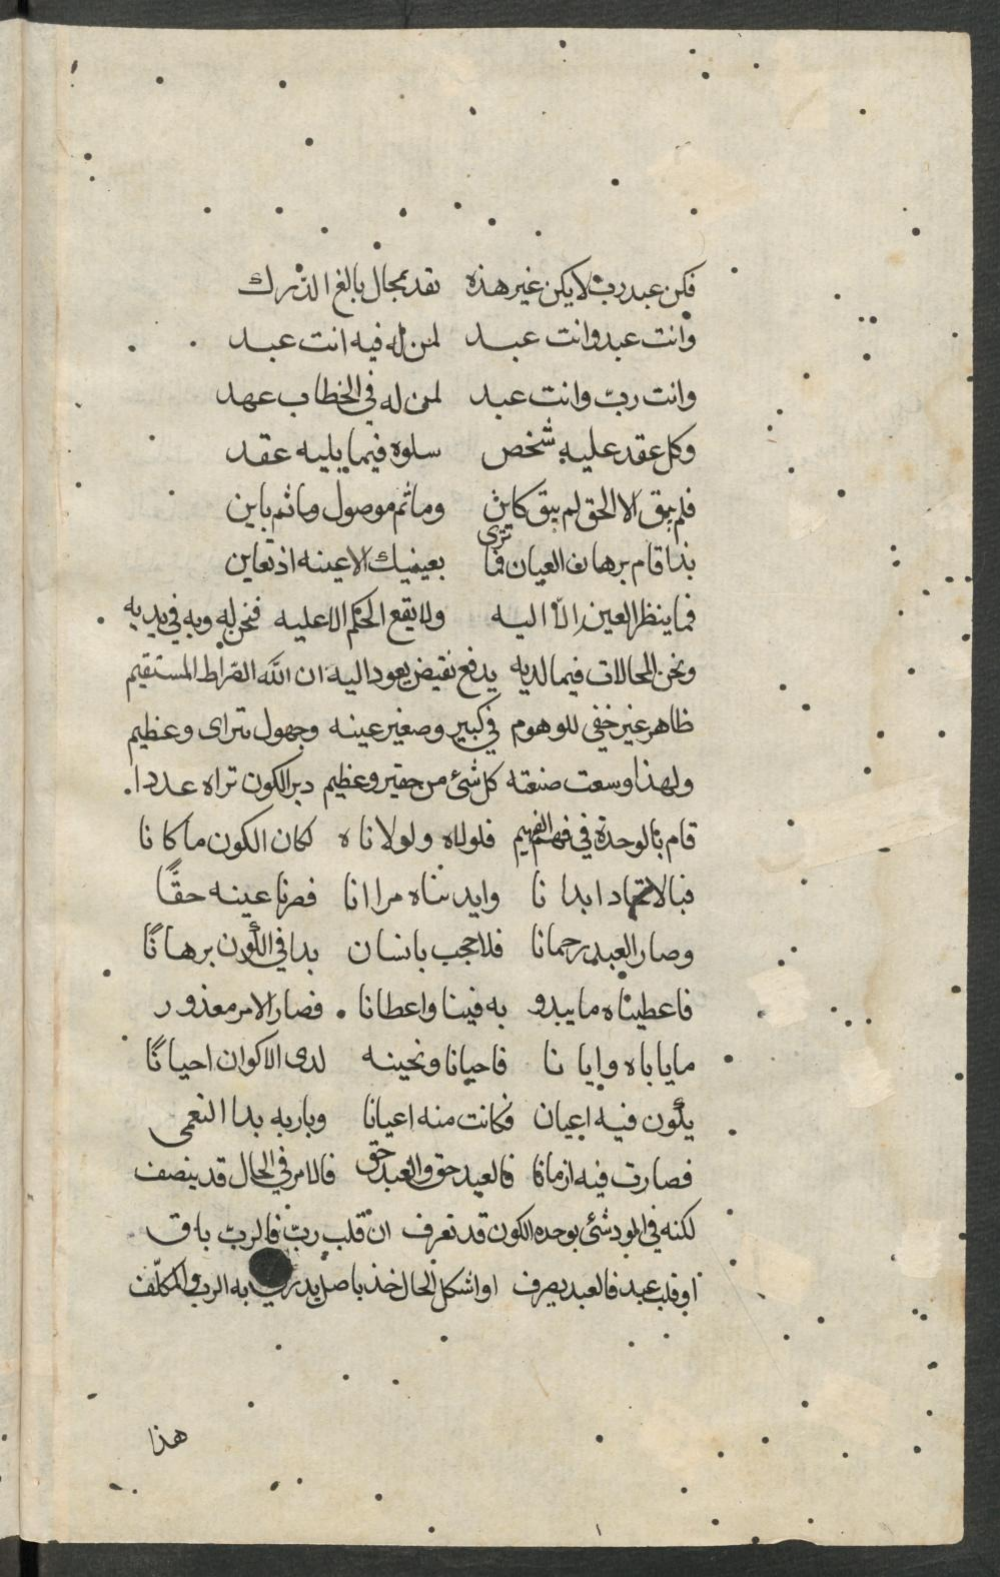 فكن عبد رب لا يكن غير هذه تقد بمجال بالغ الدرك
وانت عبد وانت عبد لمن له فيه انت عبد
وانت رب وانت عبد لمن له في الخطاب عهد
وكل عقد عليه شخص سلوه فيما يليه عقد
فلم يبق الا الحق لم يبق كاين وما ثم موصول وما ثم باين
بذا قام برهان العيان فما ترى بعينيك الا عينه اذ تعاين
فما ينظر العين الا اليه ولا يقع الحكم الا عليه فنحن له وبه في يديه
ونحن الحالات فيما لديه يدفع نقيض يعود اليه ان الله الصراط المستقيم
ظاهر غير خفي للوهوم في كبير وصغير عينه وجهول تراى وعظيم
ولهذا وسعت صنعته كل شئ من حقير وعظيم دبر الكون تراه عددا.
قام بالوحدة في فهم الفهيم فلولاه ولولانا ه لكان الكون ما كانا
فبالاتحاد ابدا نا وايدناه مرانا فصرنا عينه حقًّا
وصار العبد رحمانا فلا عجب بانسان بدا في الكون برهانًا
فاعطيناه ما يبدو به فينا واعطانا . فصار الامر معذور
ما ياباه وايا نا فاحيانا ونحينه لدى الاكوان احيانًا
يكون فيه اعيان فكانت منه اعيانا وباربه بدا النعمى
فصارت فيه ازمانا فالعبد حق والعبد حق فالامر في الحال قد ينصف
لكنه في الود شئ بوحده الكون قد تعرف ان قلب رب فالرب باق
او قلب عبد فالعبد يصرف او اشكل الحال خذ باصل يدري به الرب والمكلف
هذا